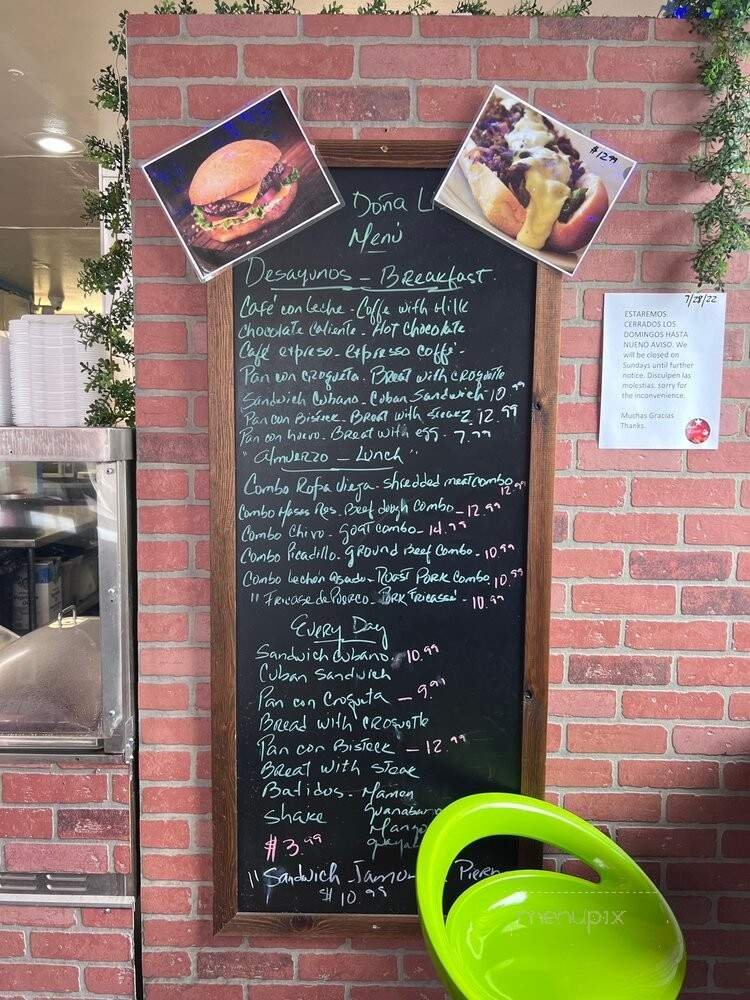 $12.99
Doña L
Menú
Desayunos - Breakfast
Café con leche - Coffe with Milk
chocolate caliente - Hot chocolate
Café expreso - expresso coffe -
Pan con croqueta - Breat with croquette
Sandwich Cubano - Cuban Sandwich 10.99
Pan con Bisteck - Breat with steak 12.99
Pan con huevo. Breat with egg - 7.99
" Almuerzo - Lunch "
Combo Ropa Vieja - shredded meat combo
12.99
Combo Masas Res. Beef dough Combo - 12.99
Combo Chivo - goat combo - 14.99
Combo Picadillo - ground Beef Combo - 10.99
Combo Lechon Asado - Roast Pork Combo 10.99
" Fricase de Puerco - Pork Fricassé - 10.99
Every Day
Sandwich Cubano - 10.99
Cuban Sandwich
Pan con Croqueta - 9.99
Bread with croquette
Pan con Bisteck - 12.99
Breat with steak
Batidos - Mamey
shake Guanabana
Mango
$3.99
" Sandwich Jamon Piern
$10.99
7/28/22
ESTAREMOS
CERRADOS LOS
DOMINGOS HASTA
NUENO AVISO. We
will be closed on
Sundays until further
notice. Disculpen las
molestias. sorry for
the inconvenience.
Muchas Gracias
Thanks.
menupix